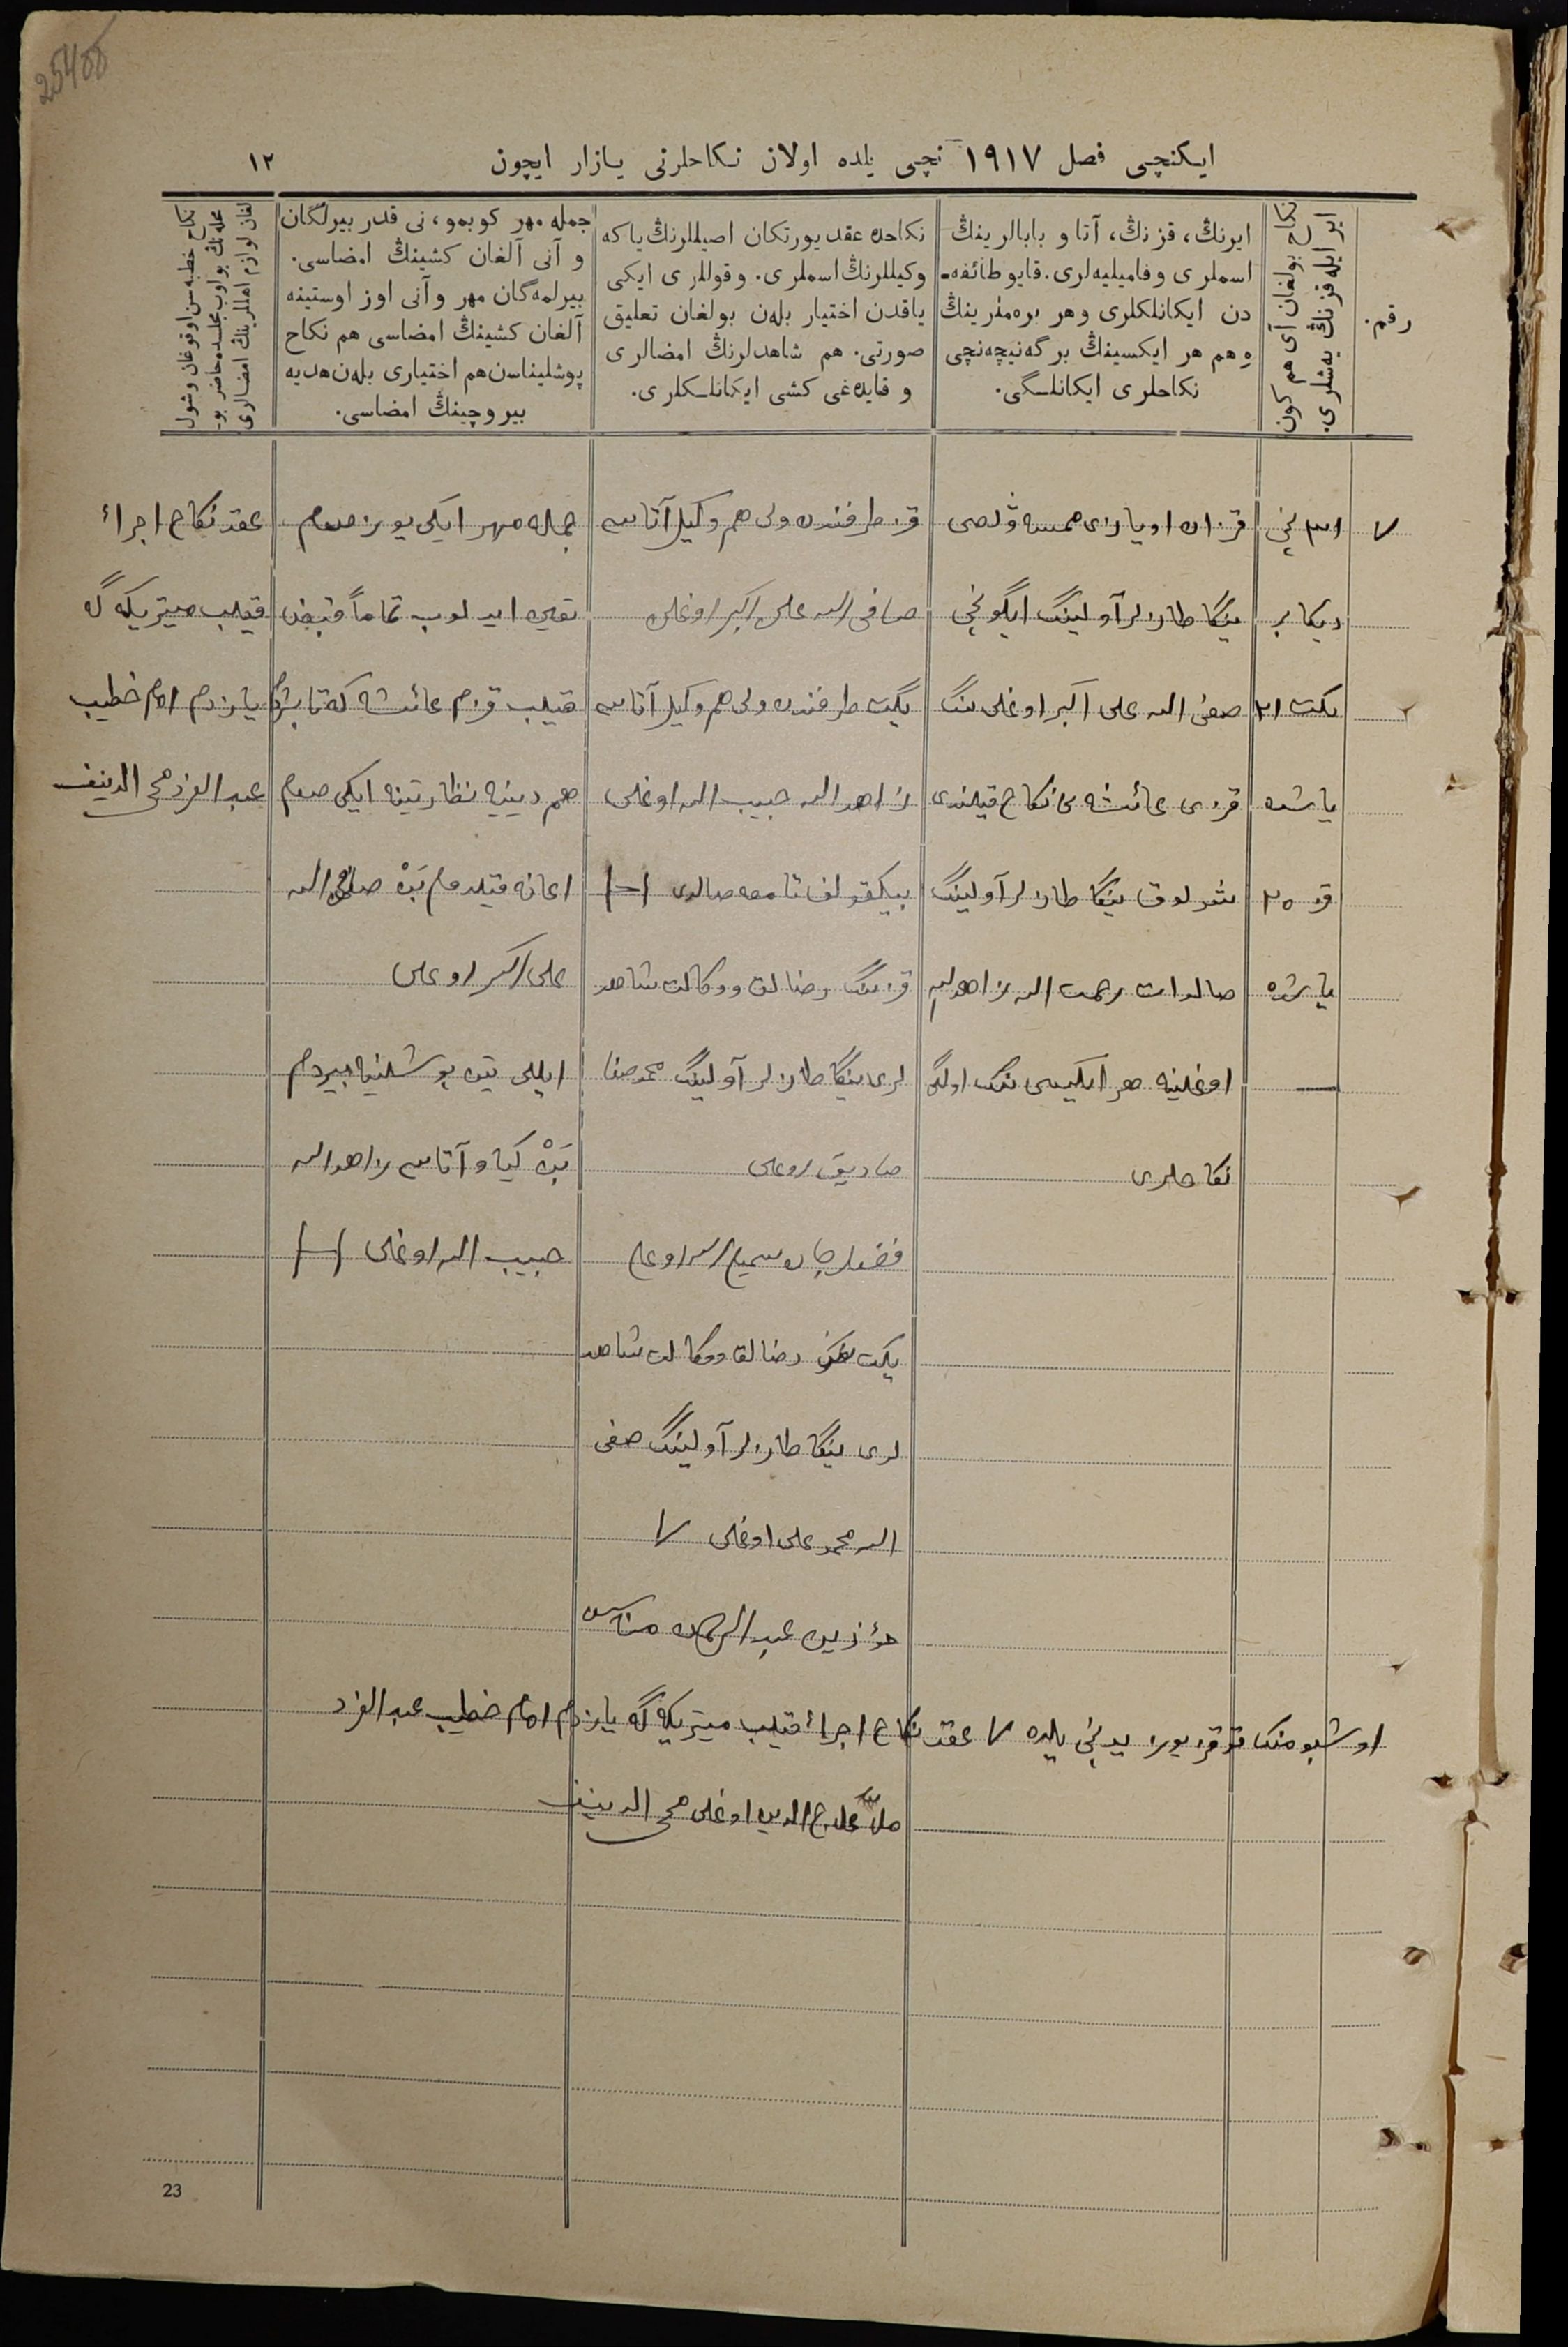 25400
ایکنچی فصل ۱۹۱۷ نچی یلده اولان نکاحلرنی یازار ایچون
۱۲
رقم
نکاح بولغان آی هم کون
ایر ایله قزنڭ یه‌شلری.
ایرنڭ، قزنڭ، آتا و بابالرینڭ
اسملری و فامیلیه‌لری. قایو طائفه‌ـ
دن ایکانلکلری وهر بره‌مز‌ینڭ
هم هر ایکسینڭ برگه نیچه‌نچی
نکاحلری ایکانلـگی.
نکاحده عقد یورتکان اصیللرنڭ یا که
وکیللرنڭ اسملری. وقوللری ایکی
یاقدن اختیار بله‌ن بولغان تعلیق
صورتی. هم شاهدلرنڭ امضالری
و قایداغی کشی ایکانلـکلری.
جمله مهر کوبمو، نی قدر بیرلگان
و آنی آلغان کشینڭ امضاسی.
بیرلمه‌گان مهر و آنی اوز اوستینه
آلغان کشینڭ امضاسی هم نکاح
پوشلیناسن هم اختیاری بله‌ن هدیه
بیروچینڭ امضاسی.
نکاح خطبه‌سن اوقوغان و شول
محله‌نڭ بولوب مجلسده حاضر بو
لغان لوازم اهللرینڭ امضالری
۷
۳۱ نچی
دیکابر
یکت ۲۱
یاشده
قز ۲۵
یاشده
قزان اویازی
ینگا طازلر آولینگ ایگونچی
صفی الله علی اکبر اوغلی ننگ
قزی عائشه نی نکاح قیلندی
شولوق ینگا طازلر آولینگ
صالدات رحمت الله زاهدالله
اوغلینه هر ایکیسی ننگ اولگی
نکاحلری
قز طرفندن ولی هم وکیل آتاسی
صافی الله علی اکبر اوغلی
یگت طرفندن ولی هم وکیل آتاسی
زاهد الله حبیب الله اوغلی
قزننگ رضالق و وکالت شاهد
لری ینگا طازلر آولینگ محمد صفا
صادیق اوغلی
فضل جان سمیع الله اوغلی
یکت ننگ رضالق و وکالت شاهد
لری ینگا طازلر آولینگ صفی
الله محمد علی اوغلی ۷
مؤذین عبد الرحمان
جمله مهر ایکی یوز صوم
تعیین ایدلوب تماماً قبض
قیلب قزم عائشه که تابشردم
هم دینیه نظارتینه ایکی صوم
اعانه قیلدم من صافی الله
علی اکبر اوغلی
ایللی تین پوشلینه بیردم
من کیاو آتاسی زاهد الله
حبیب الله اوغلی
عقد نکاح اجراء
قیلب میتریکه گه
یازدم امام خطیب
محی الدینف
اوشبو منک توقز یوز یدنچی یلده ۷ عقد نکاح اجراء قیلب میتریکه گه یازدم امام خطیب
ملا علاج الدین اوغلی محی الدینف
23